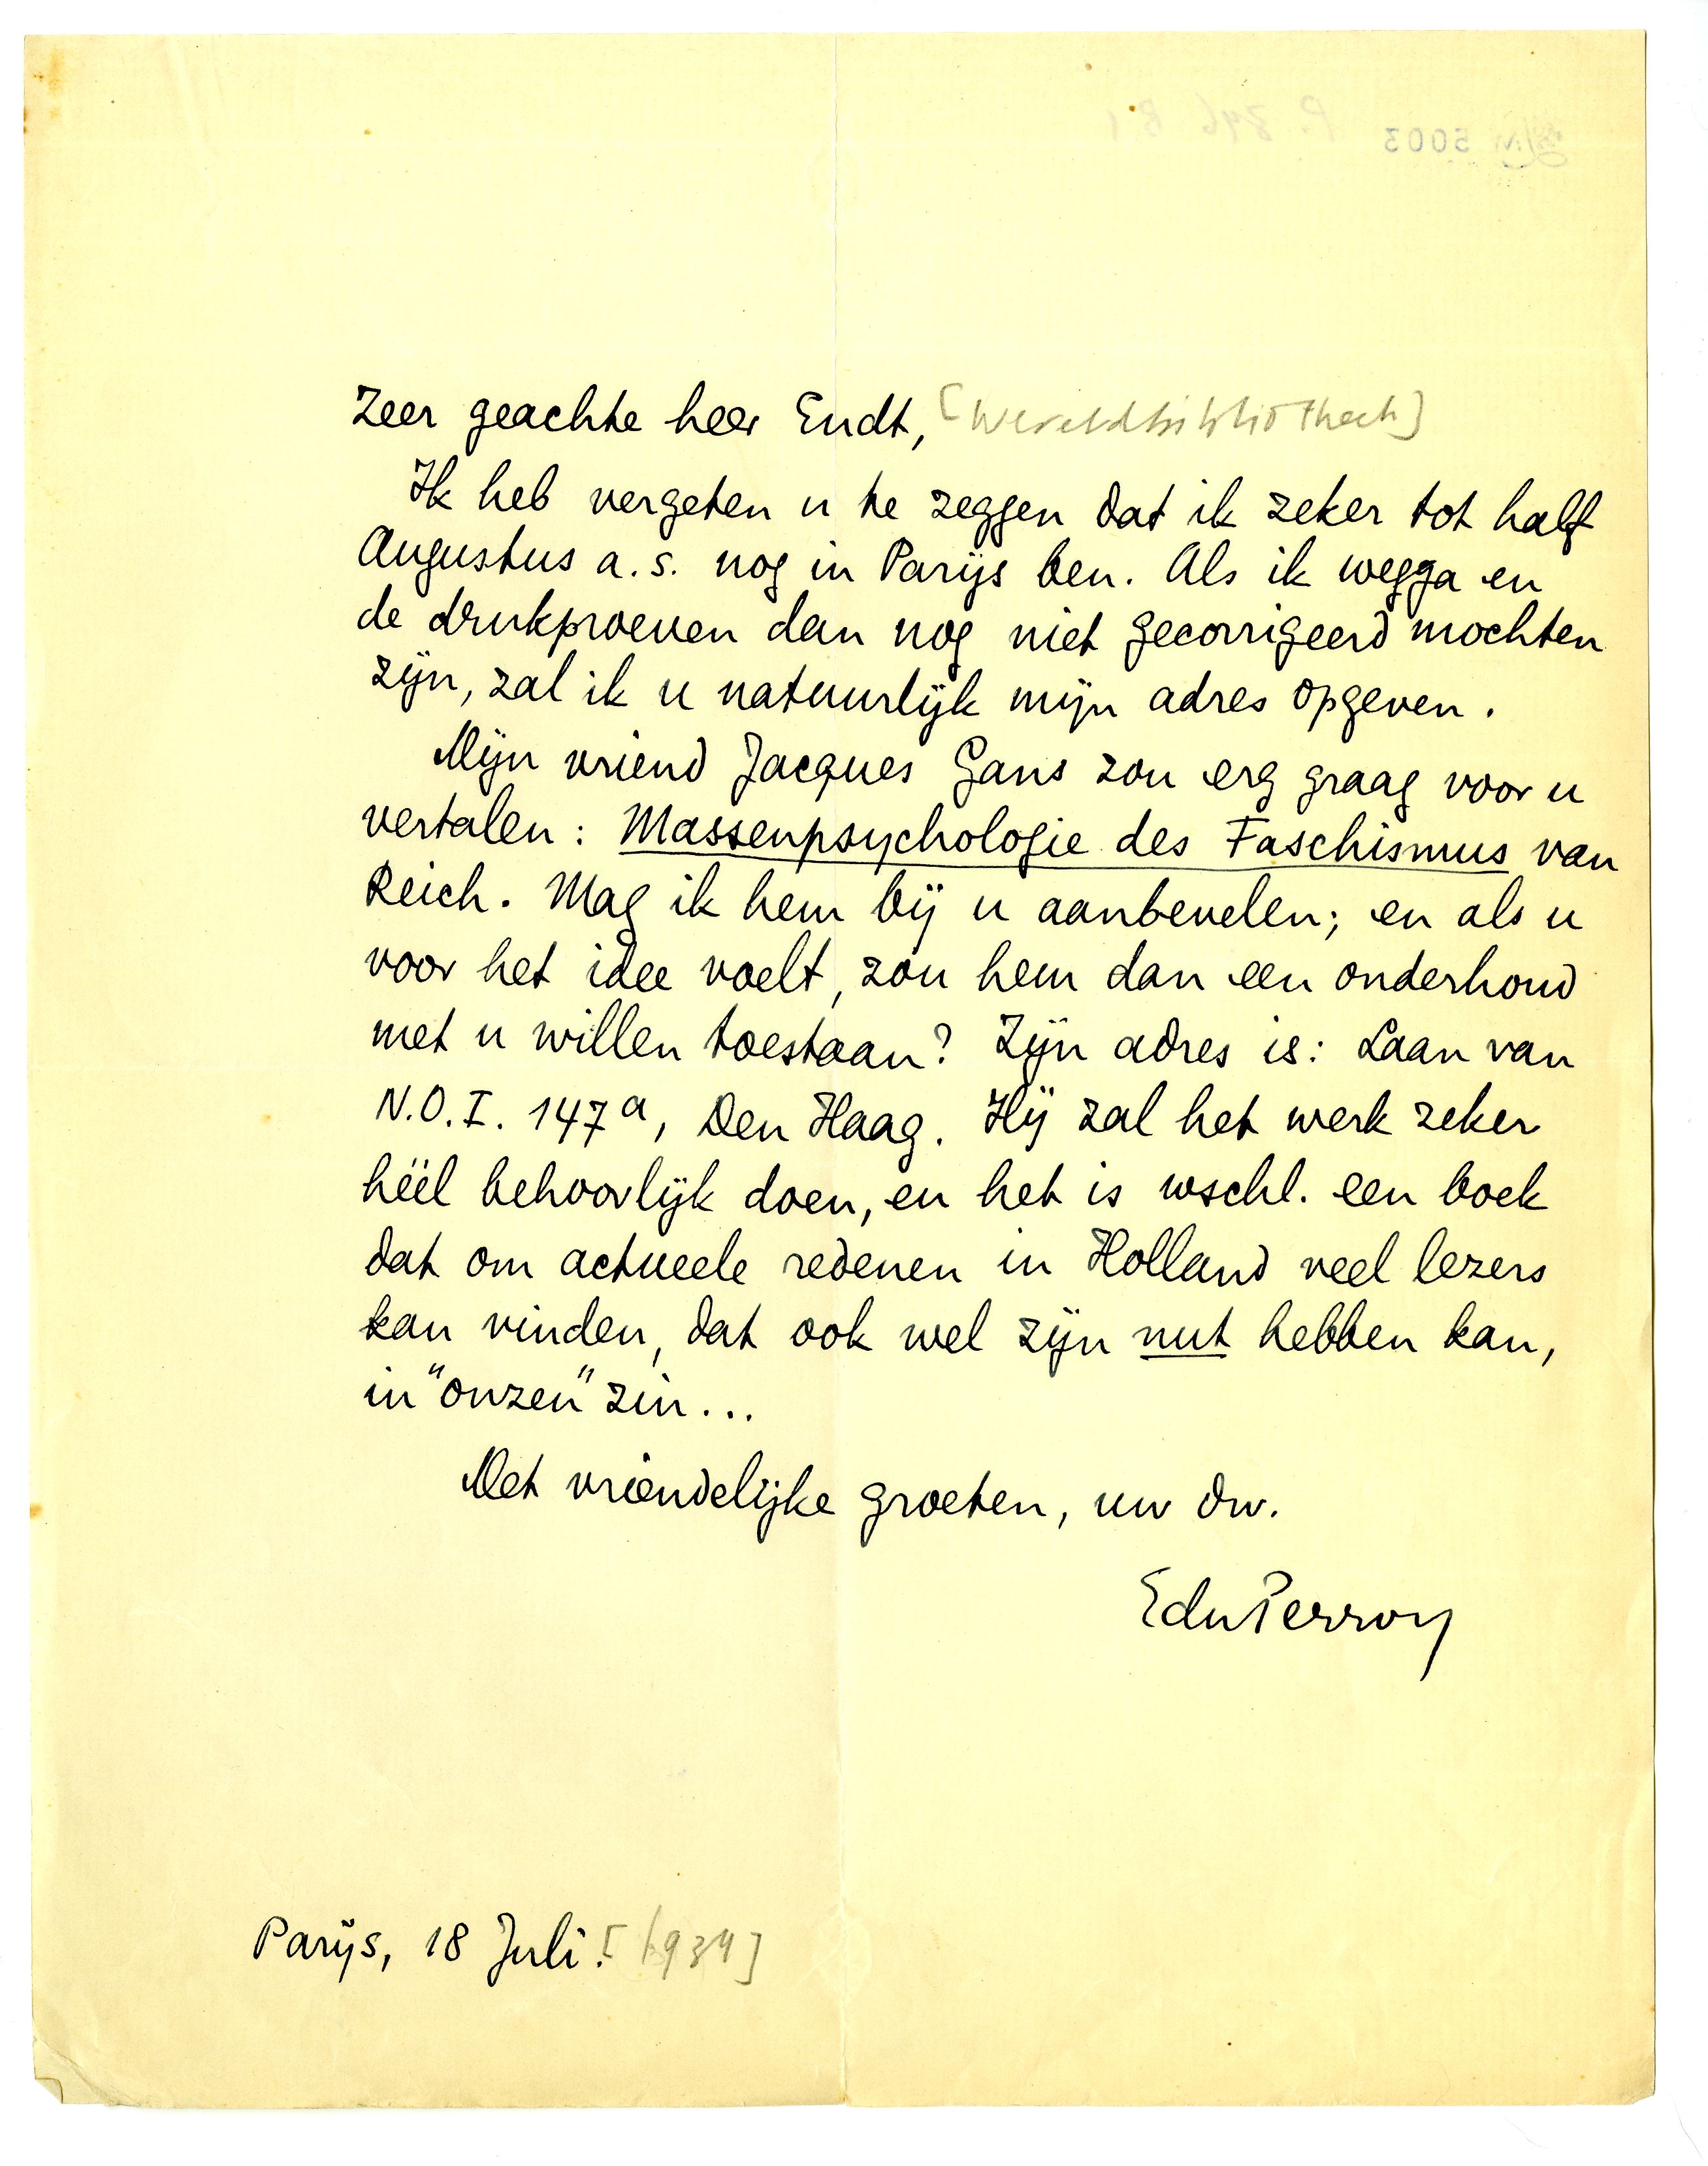 Zeer geachte heer Endt, [Wereldbibliotheek]
Ik heb vergeten u te zeggen dat ik zeker tot half
Augustus a.s. nog in Parijs ben. Als ik wegga en
de drukproeven dan nog niet gecorrigeerd mochten
zijn, zal ik u natuurlijk mijn adres opgeven.
Mijn vriend Jacques Gans zou erg graag voor u
vertalen: Massenpsychologie des Faschismus van
Reich. Mag ik hem bij u aanbevelen; en als u
voor het idee voelt, zou hem dan een onderhoud
met u willen toestaan? Zijn adres is: Laan van
N.O.I. 147a, Den Haag. Hij zal het werk zeker
héél behoorlijk doen, en het is wschl. een boek
dat om actueele redenen in Holland veel lezers
kan vinden, dat ook wel zijn nut hebben kan,
in "onzen" zin...
Met vriendelijke groeten, uw dw.
EduPerron
Parijs, 18 Juli. [1934]